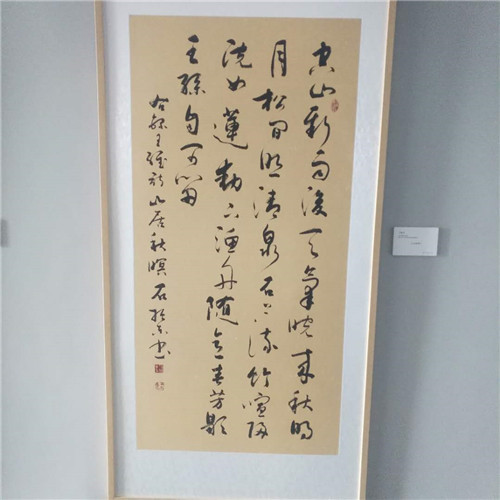 空山新雨後天氣晚來秋明
月松間照清泉石上流竹喧歸
浣女蓮動下漁舟随意春芳歇
王孫自可留
右録王維詩山居秋暝石書